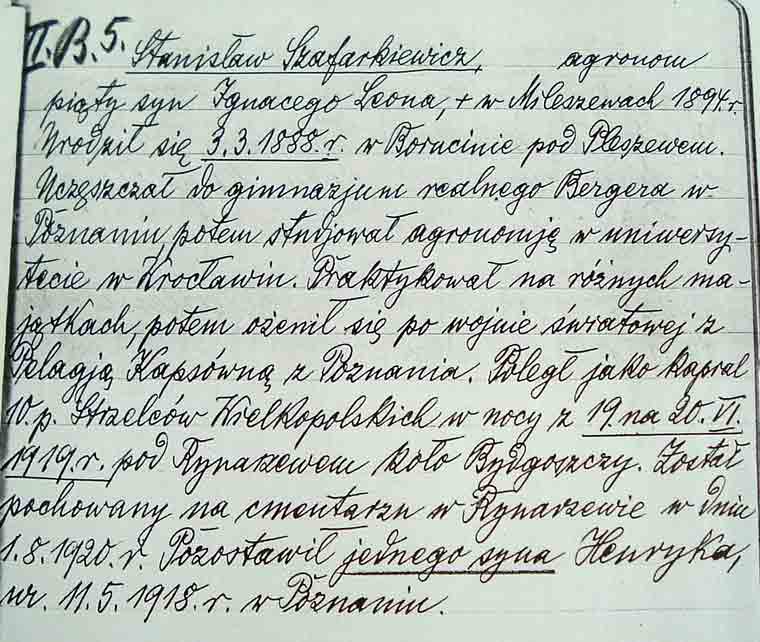 II.B.5. Stanisław Szafarkiewicz, agronom
piąty syn Ignacego Leona, + w Mileszewach 1894.r.
Urodził się 3.3.1888.r. w Borucinie pod Pleszewem.
Uczęszczał do gimnazjum realnego Bergera w.
Poznaniu, potem studjował agronomję w uniwersy-
tecie w Wrocławiu. Praktykował na różnych ma-
jątkach, potem ożenił się po wojnie światowej z
Pelagją Kapsówną z Poznania. Poległ jako kapral
10.p. Strzelców Wielkopolskich w nocy z 19. na 20. VI.
1919.r. pod Rynarzewem koło Bydgoszczy. Został
pochowany na cmentarzu w Rynarzewie w dniu
1.8.1920.r. Pozostawił jednego syna Henryka,
ur. 11.5.1918.r. w Poznaniu.